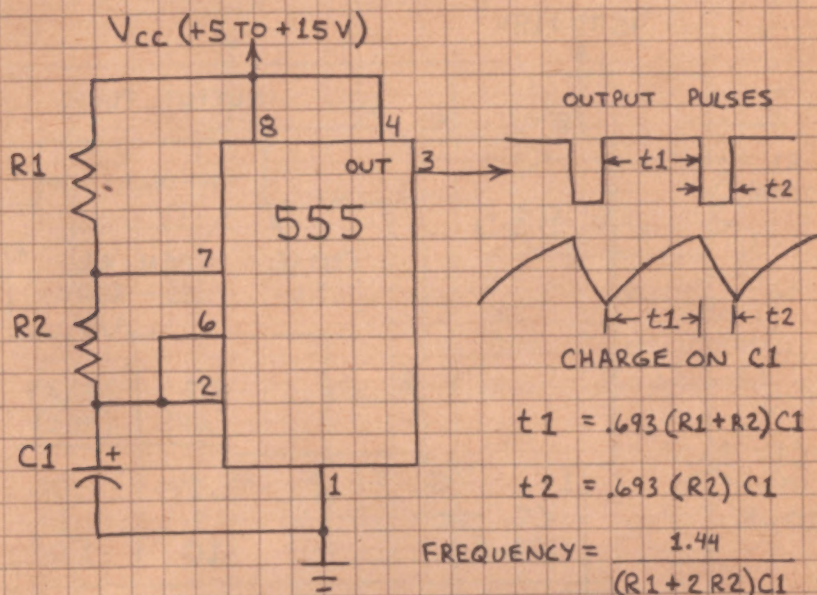 Vcc (+5 TO +15 V)
8
4
OUT
3
R1
555
7
R2
6
2
C1
+
1
OUTPUT PULSES
t1
t2
t1
t2
CHARGE ON C1
t1 = .693 (R1+R2) C1
t2 = .693 (R2) C1
FREQUENCY = 1.44
(R1+2 R2) C1